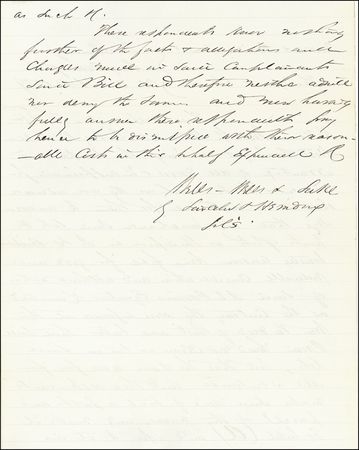 as such &c.
These respondents know nothing
further of the facts & allegations and
Charges made in said Complainants
said Bill and therefore neither admit
nor deny the same and now having
fully answered these respondents pray
hence to be dismissed with their reason
-able Costs in this behalf Expended &c
Mills &
&
Sols.